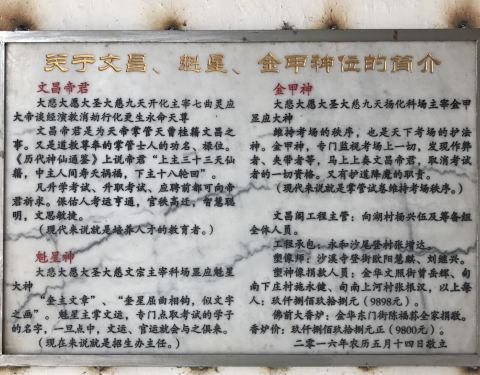 关于文昌、魁星、金甲神位的简介
文昌帝君
大悲大愿大圣大慈九天开化主宰七曲灵应
大帝谈经演教消劫行化更生永命天尊
文昌帝君是为天帝掌管天曹桂籍文昌之
事。又是道教尊奉的掌管士人的功名、禄位。
《历代神仙通鉴》上说帝君“上主三十三天仙
籍，中主人间寿夭祸福，下主十八轮回”。
凡升学考试、升职考试、应聘前都可向帝
君祈求。保佑人考运亨通，官秩高迁，智慧聪
明，文思敏捷。
(现代来说就是培养人才的教育者。)
魁星神
大悲大愿大圣大慈文宫主宰科场显应魁星
大神
“奎主文章”、“奎星屈曲相钩，似文字
之画”。魁星主掌文运，专门点取考试的学子
的名字，一旦点中，文运、官运就会与之俱来。
(现在来说就是招生办主任。)
金甲神
大悲大愿大圣大慈九天扬化科场主宰金甲
显应大神
维持考场的秩序，也是天下考场的护法
神。金甲神，专门监视考场上一切，发现作弊
者、夹带者等，马上上奏文昌帝君，取消考试
者的一切资格。又有护道降魔的职责。
(现代来说就是掌管试卷维持考场秩序。)
文昌阁工程主管：向湖村杨兴伍及筹备组
全体人员。
工程承包：永和沙尾登村张增达。
塑像师：沙溪寺登街欧阳慧麟、刘继兴。
塑神像捐款人员：金华文照街曾岳辉、甸
南下庄村施永健、甸南上河村张根汉，以上每
人：玖仟捌佰玖拾捌元（9898元）。
佛前大香炉：金华东门街陈福荪全家捐敬。
香炉价：玖仟捌佰玖拾捌元正（9800元）。
二零一六年农历五月十四日敬立